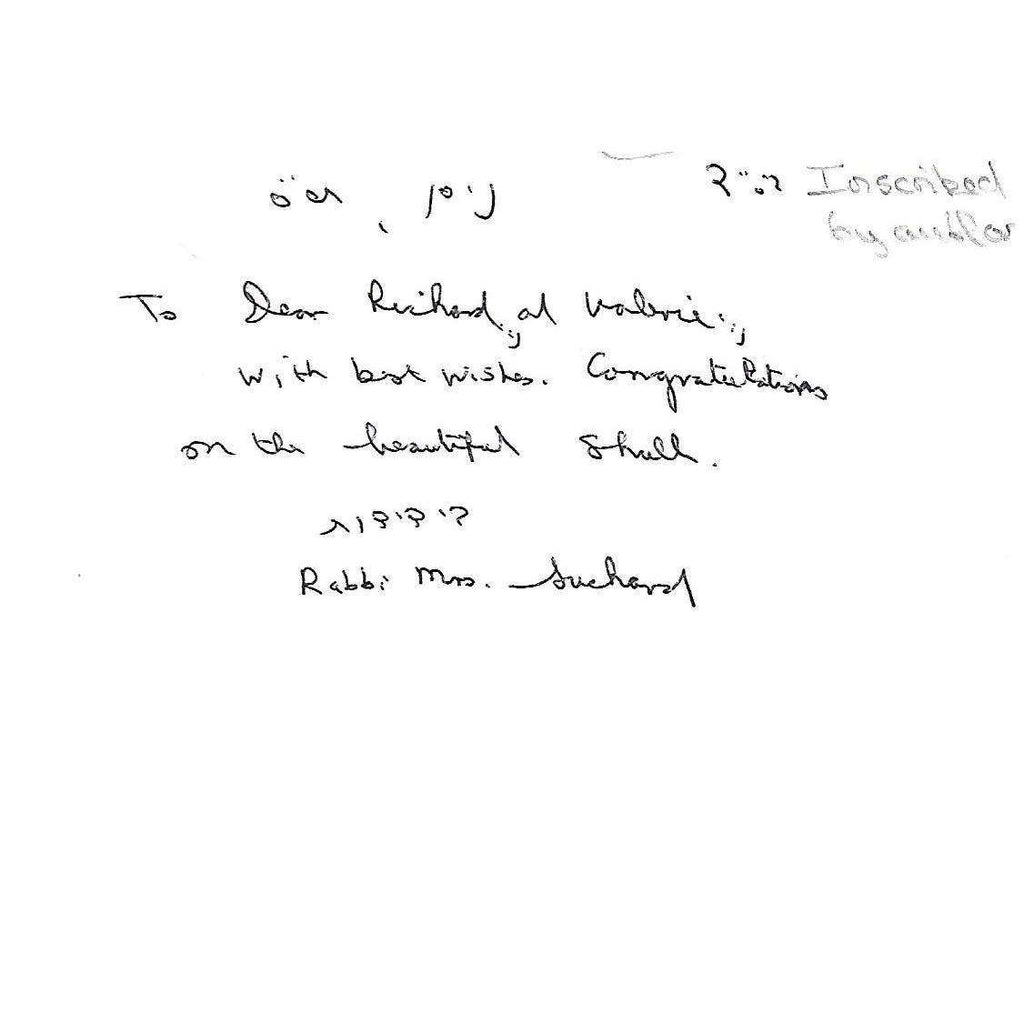 בס"ד Inscribed
by author
ניסן,
To Dear Richard, and Valerie,
with best wishes. Congratulations
on the beautiful Shull.
בידידות
Rabbi Mrs. Suchard